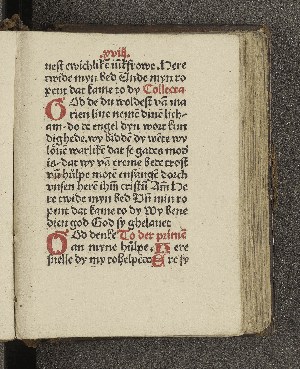 .xviij.
nest ewichlikē iūkfrowe. Here
twide myn bed Ende myn ro
pent dat kame to dy Collecta
God de du woldest vā ma
rien liue nemē dinē lich-
am-do de engel dyn wort kun
dighede. wy bidden dy wete wy
lōuē warlikē dat se gades mod
is-dat wy vā ereme bede trost
vñ hülpe motē enfangē dorch
vnsen herē ihm̄ cristū Am̄ He
re twide myn bed Vn̄ min ro
pent dat kame to dy Wy bene
dien god God sy ghelauet
God dencke To der primē
an myne hülpe. Here
snelle dy my to helpēde Ere sy